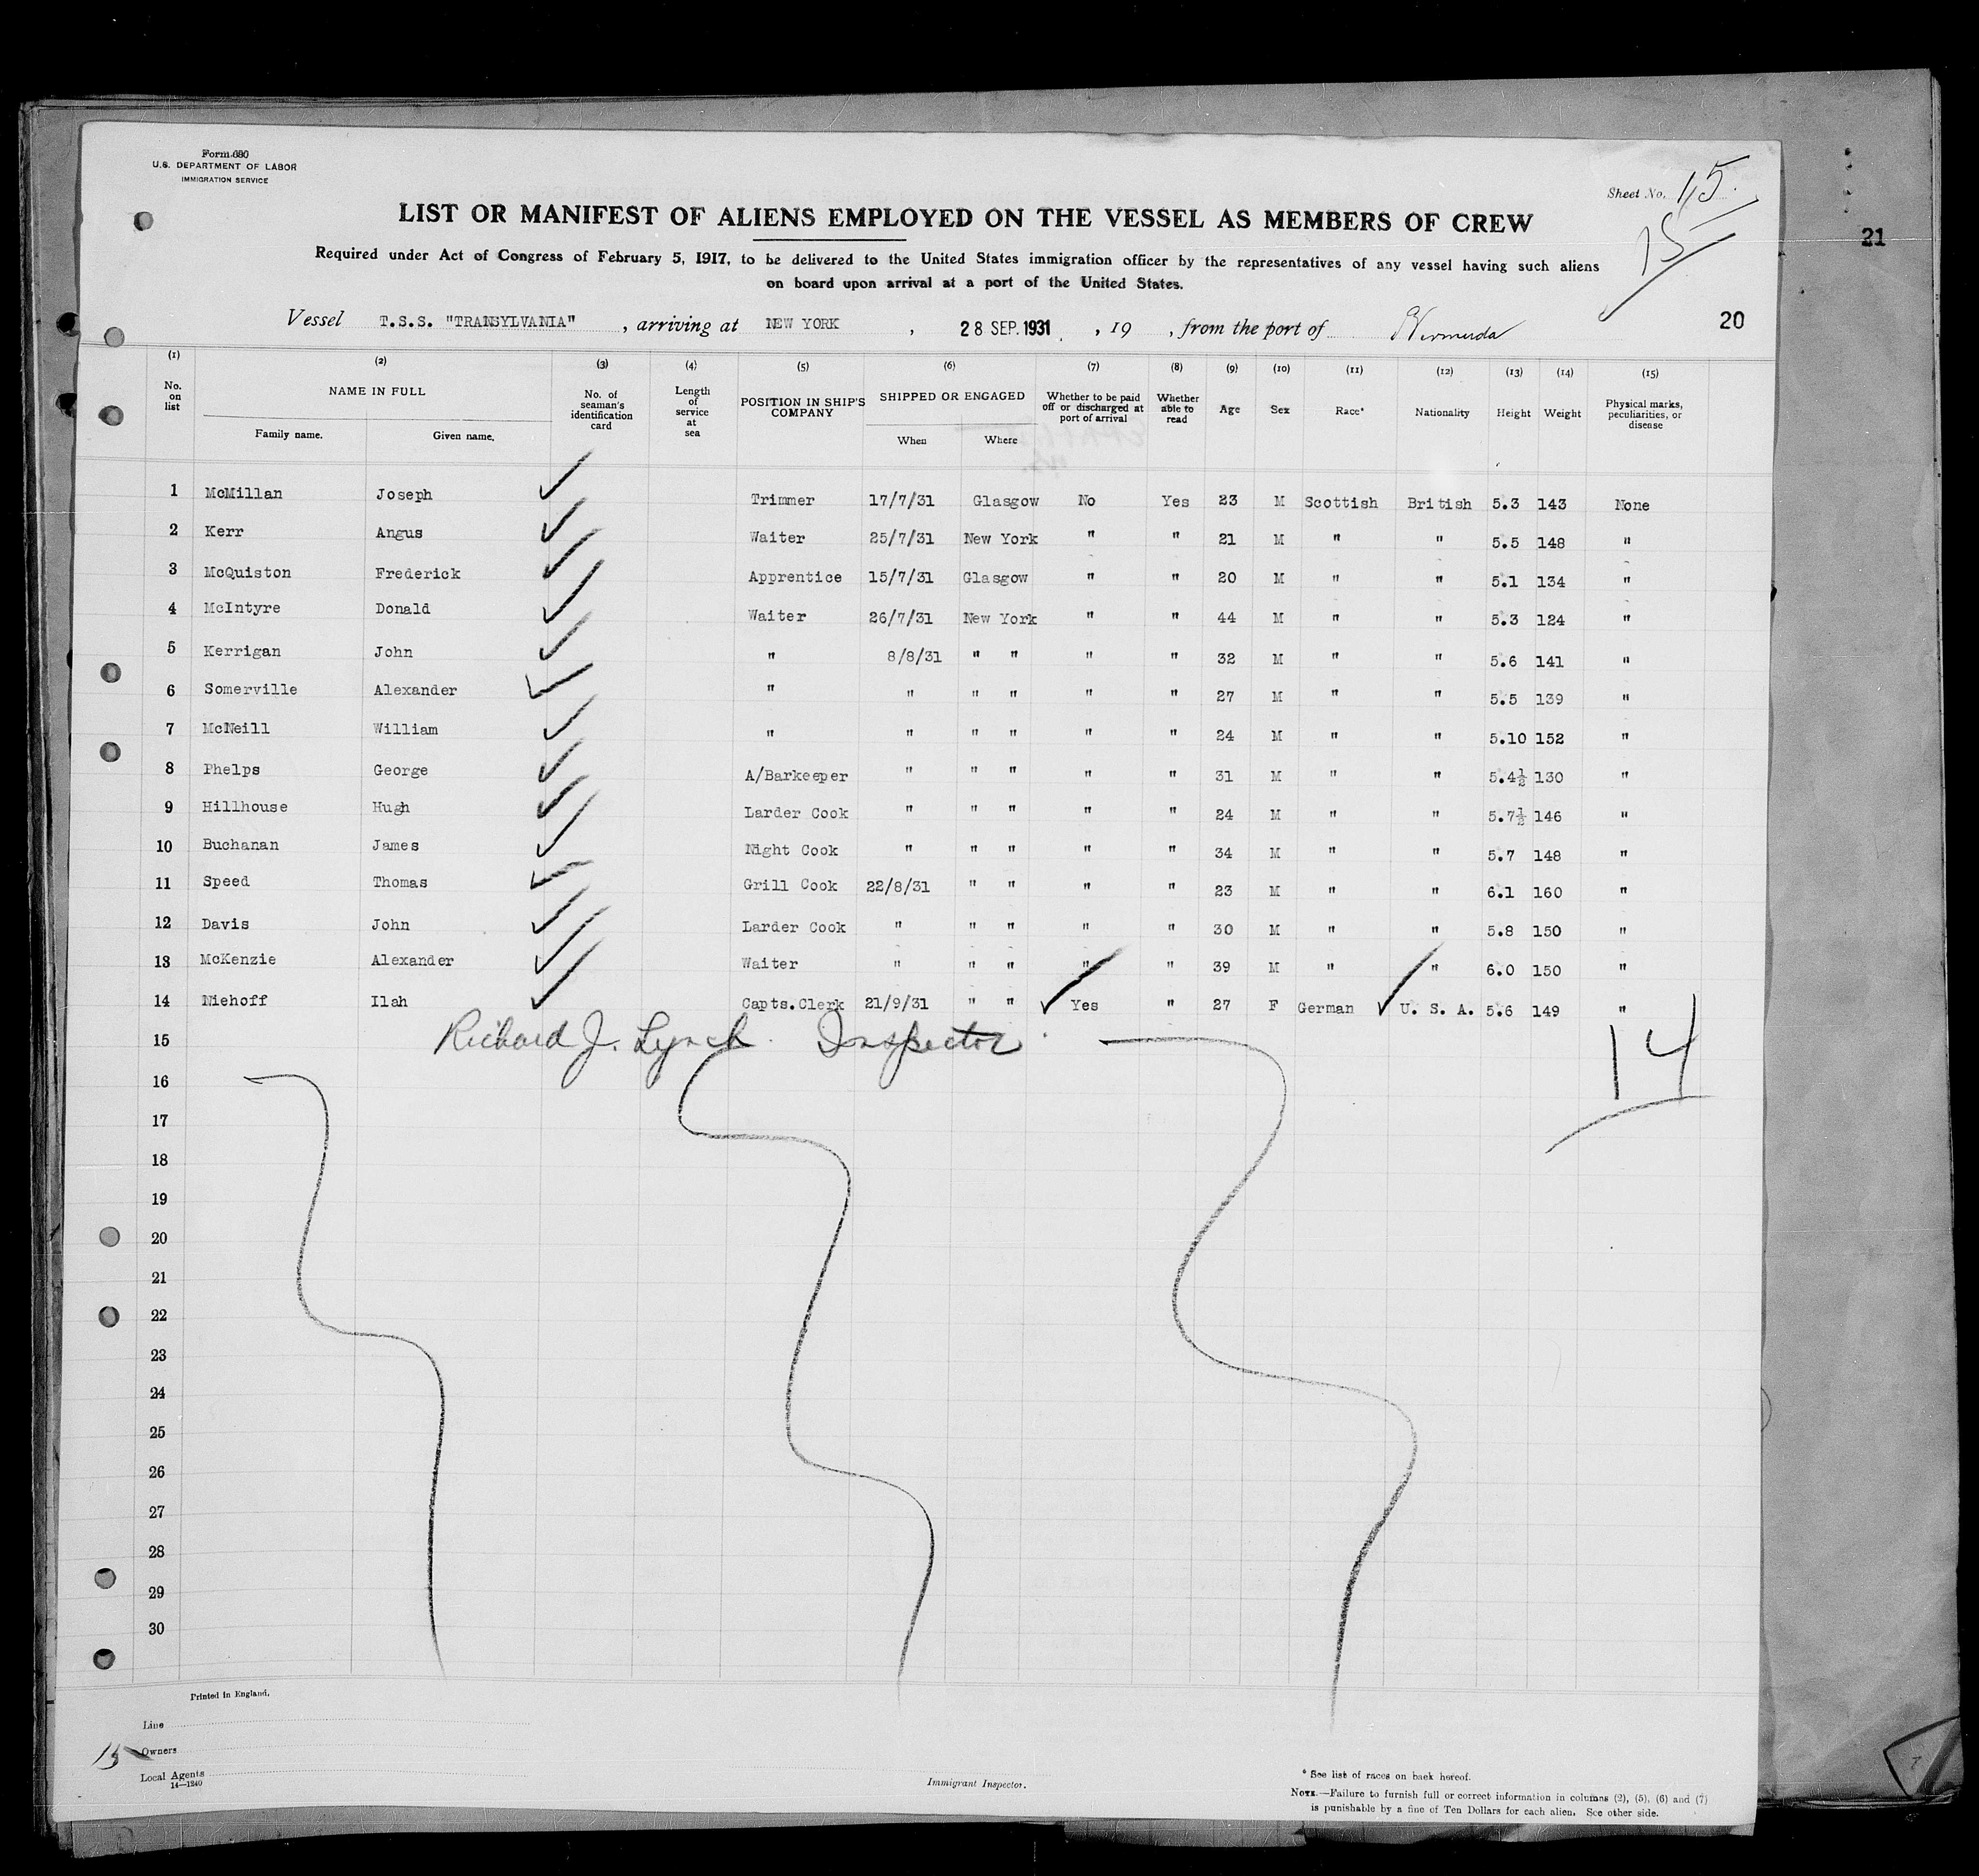 Form 680
U.S. DEPARTMENT OF LABOR
IMMIGRATION SERVICE
Sheet No. 15
15
21
LIST OR MANIFEST OF ALIENS EMPLOYED ON THE VESSEL AS MEMBERS OF CREW
Required under Act of Congress of February 5, 1917, to be delivered to the United States immigration officer by the representatives of any vessel having such aliens
on board upon arrival at a port of the United States.
Vessel T.S.S. "TRANSYLVANIA", arriving at NEW YORK, 28 SEP. 1931, 19 , from the port of Bermuda
20
(1) (2) (3) (4) (5) (6) (7) (8) (9) (10) (11) (12) (13) (14) (15)
No. on list NAME IN FULL Family name. Given name. No. of seaman's identification card Length of service at sea POSITION IN SHIP'S COMPANY SHIPPED OR ENGAGED When Where Whether to be paid off or discharged at port of arrival Whether able to read Age Sex Race* Nationality Height Weight Physical marks, peculiarities, or disease
1 McMillan Joseph ✓ Trimmer 17/7/31 Glasgow No Yes 23 M Scottish British 5.3 143 None
2 Kerr Angus ✓ Waiter 25/7/31 New York " " 21 M " " 5.5 148 "
3 McQuiston Frederick ✓ Apprentice 15/7/31 Glasgow " " 20 M " " 5.1 134 "
4 McIntyre Donald ✓ Waiter 26/7/31 New York " " 44 M " " 5.3 124 "
5 Kerrigan John ✓ " 8/8/31 " " " " 32 M " " 5.6 141 "
6 Somerville Alexander ✓ " " " " " " 27 M " " 5.5 139 "
7 McNeill William ✓ " " " " " " 24 M " " 5.10 152 "
8 Phelps George ✓ A/Barkeeper " " " " " 31 M " " 5.4½ 130 "
9 Hillhouse Hugh ✓ Larder Cook " " " " " 24 M " " 5.7½ 146 "
10 Buchanan James ✓ Night Cook " " " " " 34 M " " 5.7 148 "
11 Speed Thomas ✓ Grill Cook 22/8/31 " " " " 23 M " " 6.1 160 "
12 Davis John ✓ Larder Cook " " " " " 30 M " " 5.8 150 "
13 McKenzie Alexander ✓ Waiter " " " " " 39 M " " 6.0 150 "
14 Niehoff Ilah ✓ Capts.Clerk 21/9/31 " " ✓ Yes " 27 F German ✓ U. S. A. 5.6 149 "
15 Richard J. Lynch Inspector
14
16
17
18
19
20
21
22
23
24
25
26
27
28
29
30
Printed in England.
Line
15
Owners
Local Agents
14—1240
Immigrant Inspector.
* See list of races on back hereof.
NOTE.—Failure to furnish full or correct information in columns (2), (5), (6) and (7)
is punishable by a fine of Ten Dollars for each alien. See other side.